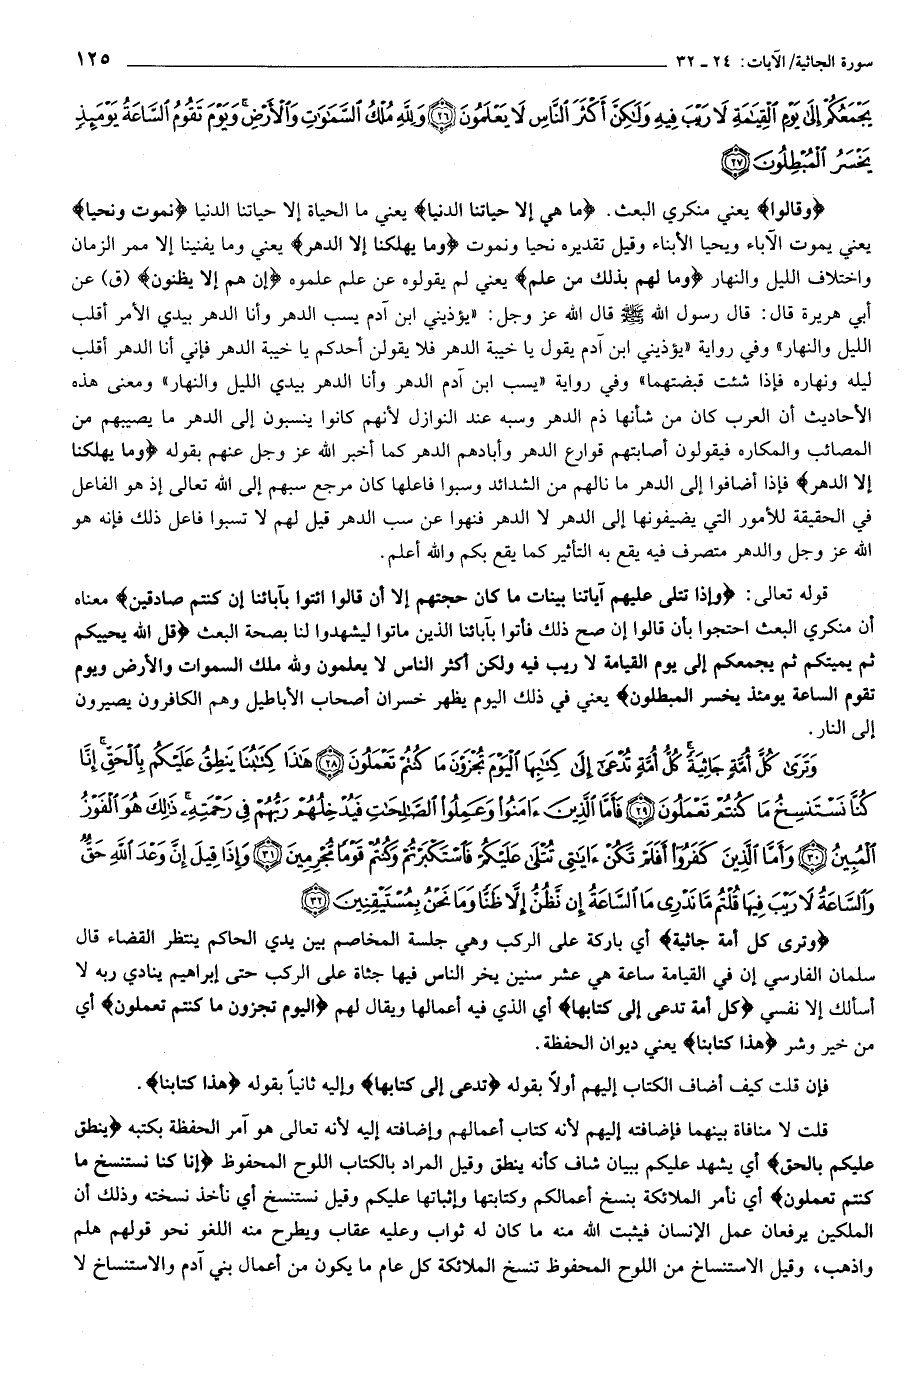 سورة الجاثية/ الآيات: ٢٤ ـ ٣٢ ١٢٥
يَجْمَعُكُمْ إِلَىٰ يَوْمِ ٱلْقِيَٰمَةِ لَا رَيْبَ فِيهِ وَلَٰكِنَّ أَكْثَرَ ٱلنَّاسِ لَا يَعْلَمُونَ ﴿٢٦﴾ وَلِلَّهِ مُلْكُ ٱلسَّمَٰوَٰتِ وَٱلْأَرْضِ ۚ وَيَوْمَ تَقُومُ ٱلسَّاعَةُ يَوْمَئِذٍ
يَخْسَرُ ٱلْمُبْطِلُونَ ﴿٢٧﴾
﴿وقالوا﴾ يعني منكري البعث. ﴿ما هي إلا حياتنا الدنيا﴾ يعني ما الحياة إلا حياتنا الدنيا ﴿نموت ونحيا﴾
يعني يموت الآباء ويحيا الأبناء وقيل تقديره نحيا ونموت ﴿وما يهلكنا إلا الدهر﴾ يعني وما يفنينا إلا ممر الزمان
واختلاف الليل والنهار ﴿وما لهم بذلك من علم﴾ يعني لم يقولوه عن علم علموه ﴿إن هم إلا يظنون﴾ (ق) عن
أبي هريرة قال: قال رسول الله ﷺ قال الله عز وجل: «يؤذيني ابن آدم يسب الدهر وأنا الدهر بيدي الأمر أقلب
الليل والنهار» وفي رواية «يؤذيني ابن آدم يقول يا خيبة الدهر فلا يقولن أحدكم يا خيبة الدهر فإني أنا الدهر أقلب
ليله ونهاره فإذا شئت قبضتهما» وفي رواية «يسب ابن آدم الدهر وأنا الدهر بيدي الليل والنهار» ومعنى هذه
الأحاديث أن العرب كان من شأنها ذم الدهر وسبه عند النوازل لأنهم كانوا ينسبون إلى الدهر ما يصيبهم من
المصائب والمكاره فيقولون أصابتهم قوارع الدهر وأبادهم الدهر كما أخبر الله عز وجل عنهم بقوله ﴿وما يهلكنا
إلا الدهر﴾ فإذا أضافوا إلى الدهر ما نالهم من الشدائد وسبوا فاعلها كان مرجع سبهم إلى الله تعالى إذ هو الفاعل
في الحقيقة للأمور التي يضيفونها إلى الدهر لا الدهر فنهوا عن سب الدهر قيل لهم لا تسبوا فاعل ذلك فإنه هو
الله عز وجل والدهر متصرف فيه يقع به التأثير كما يقع بكم والله أعلم.
قوله تعالى: ﴿وإذا تتلى عليهم آياتنا بينات ما كان حجتهم إلا أن قالوا ائتوا بآبائنا إن كنتم صادقين﴾ معناه
أن منكري البعث احتجوا بأن قالوا إن صح ذلك فأتوا بآبائنا الذين ماتوا ليشهدوا لنا بصحة البعث ﴿قل الله يحييكم
ثم يميتكم ثم يجمعكم إلى يوم القيامة لا ريب فيه ولكن أكثر الناس لا يعلمون ولله ملك السموات والأرض ويوم
تقوم الساعة يومئذ يخسر المبطلون﴾ يعني في ذلك اليوم يظهر خسران أصحاب الأباطيل وهم الكافرون يصيرون
إلى النار.
وَتَرَىٰ كُلَّ أُمَّةٍ جَاثِيَةً ۚ كُلُّ أُمَّةٍ تُدْعَىٰٓ إِلَىٰ كِتَٰبِهَا ٱلْيَوْمَ تُجْزَوْنَ مَا كُنتُمْ تَعْمَلُونَ ﴿٢٨﴾ هَٰذَا كِتَٰبُنَا يَنطِقُ عَلَيْكُم بِٱلْحَقِّ ۚ إِنَّا
كُنَّا نَسْتَنسِخُ مَا كُنتُمْ تَعْمَلُونَ ﴿٢٩﴾ فَأَمَّا ٱلَّذِينَ ءَامَنُوا۟ وَعَمِلُوا۟ ٱلصَّٰلِحَٰتِ فَيُدْخِلُهُمْ رَبُّهُمْ فِى رَحْمَتِهِۦ ۚ ذَٰلِكَ هُوَ ٱلْفَوْزُ
ٱلْمُبِينُ ﴿٣٠﴾ وَأَمَّا ٱلَّذِينَ كَفَرُوٓا۟ أَفَلَمْ تَكُنْ ءَايَٰتِى تُتْلَىٰ عَلَيْكُمْ فَٱسْتَكْبَرْتُمْ وَكُنتُمْ قَوْمًا مُّجْرِمِينَ ﴿٣١﴾ وَإِذَا قِيلَ إِنَّ وَعْدَ ٱللَّهِ حَقٌّ
وَٱلسَّاعَةُ لَا رَيْبَ فِيهَا قُلْتُم مَّا نَدْرِى مَا ٱلسَّاعَةُ إِن نَّظُنُّ إِلَّا ظَنًّا وَمَا نَحْنُ بِمُسْتَيْقِنِينَ ﴿٣٢﴾
﴿وترى كل أمة جاثية﴾ أي باركة على الركب وهي جلسة المخاصم بين يدي الحاكم ينتظر القضاء قال
سلمان الفارسي إن في القيامة ساعة هي عشر سنين يخر الناس فيها جثاة على الركب حتى إبراهيم ينادي ربه لا
أسألك إلا نفسي ﴿كل أمة تدعى إلى كتابها﴾ أي الذي فيه أعمالها ويقال لهم ﴿اليوم تجزون ما كنتم تعملون﴾ أي
من خير وشر ﴿هذا كتابنا﴾ يعني ديوان الحفظة.
فإن قلت كيف أضاف الكتاب إليهم أولاً بقوله ﴿تدعى إلى كتابها﴾ وإليه ثانياً بقوله ﴿هذا كتابنا﴾.
قلت لا منافاة بينهما فإضافته إليهم لأنه كتاب أعمالهم وإضافته إليه لأنه تعالى هو آمر الحفظة بكتبه ﴿ينطق
عليكم بالحق﴾ أي يشهد عليكم ببيان شاف كأنه ينطق وقيل المراد بالكتاب اللوح المحفوظ ﴿إنا كنا نستنسخ ما
كنتم تعملون﴾ أي نأمر الملائكة بنسخ أعمالكم وكتابتها وإثباتها عليكم وقيل نستنسخ أي نأخذ نسخته وذلك أن
الملكين يرفعان عمل الإنسان فيثبت الله منه ما كان له ثواب وعليه عقاب ويطرح منه اللغو نحو قولهم هلم
واذهب، وقيل الاستنساخ من اللوح المحفوظ تنسخ الملائكة كل عام ما يكون من أعمال بني آدم والاستنساخ لا